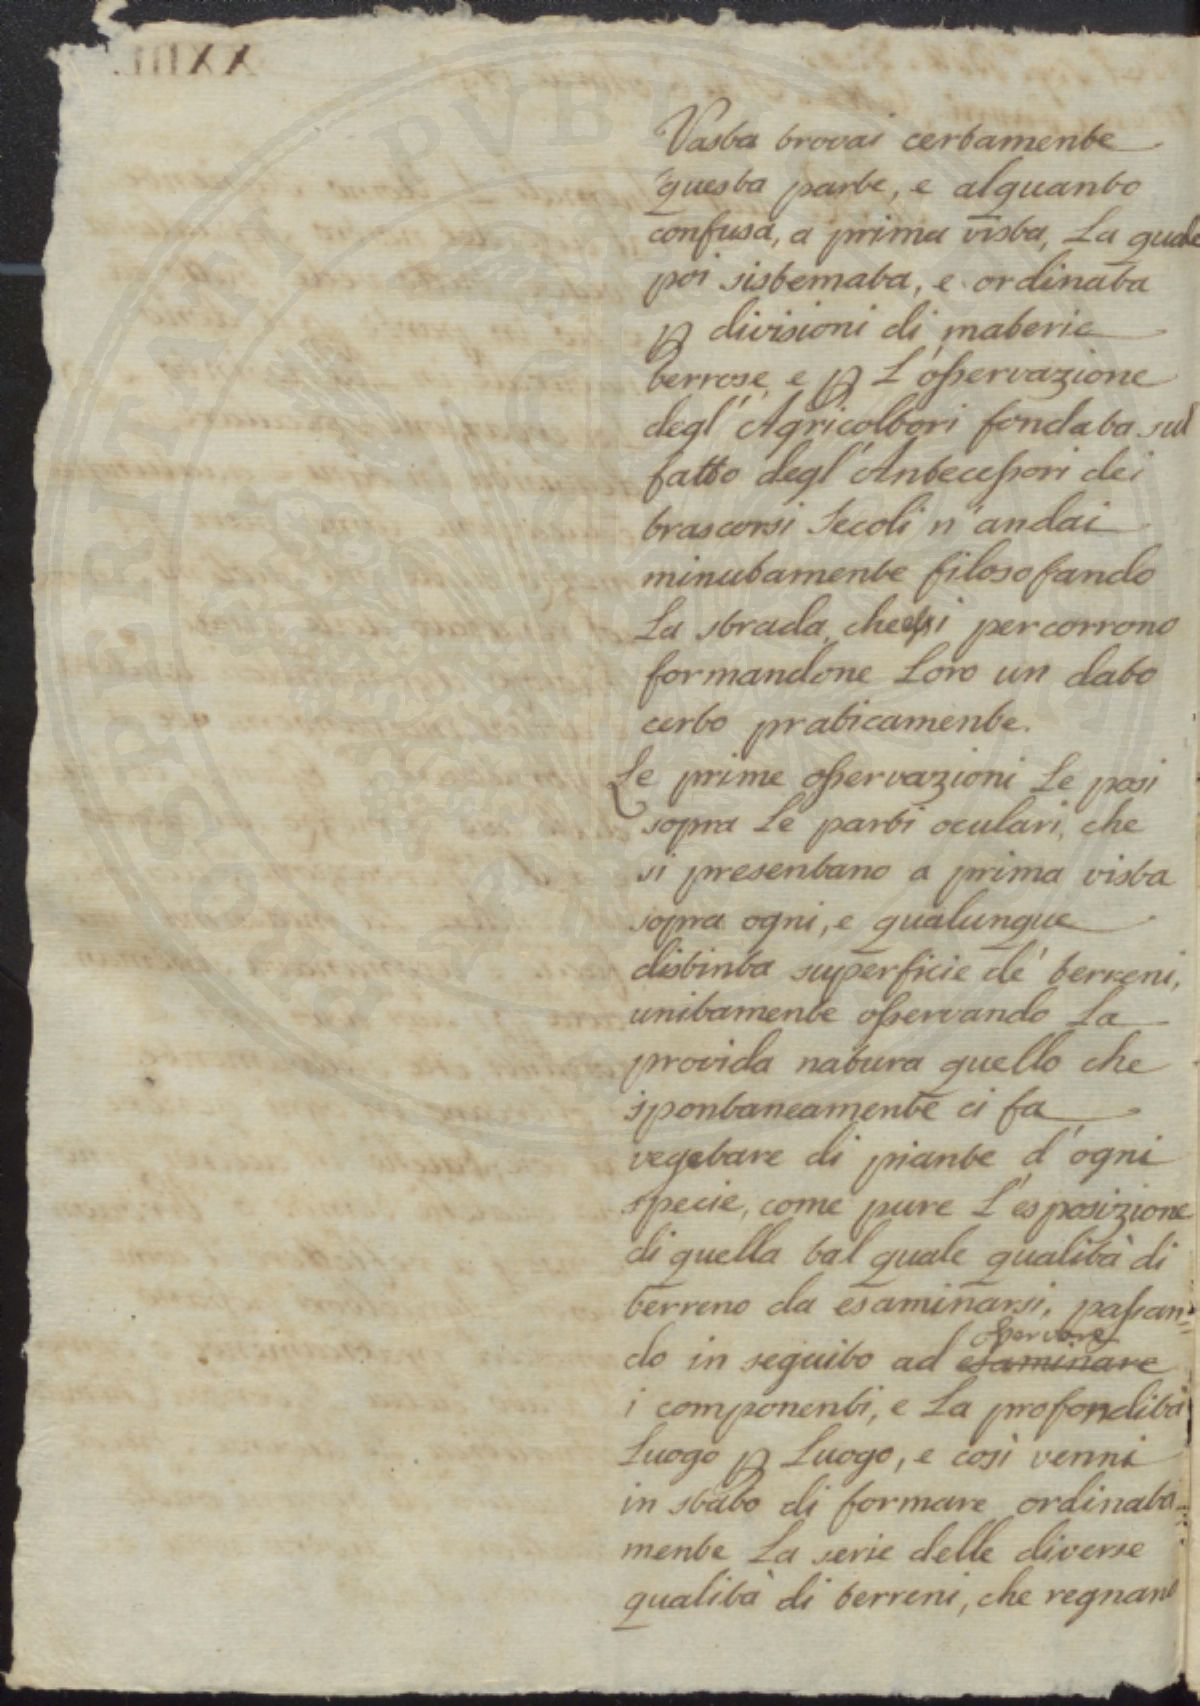 Vasta trovai certamente
questa parte, e alquanto
confusa, a prima vista, La quale
poi sistemata, e ordinata
ꝑ divisioni di materie
terrose e ꝑ L'osservazione
degl'Agricoltori fondata sul
fatto degl'Antecessori dei
trascorsi Secoli n'andai
minutamente filosofando
La strada, che essi percorrono
formandone Loro un dato
certo praticamente.
Le prime osservazioni Le posi
sopra Le parti oculari, che
si presentano a prima vista
sopra ogni, e qualunque
distinta superficie de' terreni,
unitamente osservando La
provida natura quello che
spontaneamente ci fa
vegetare di piante d'ogni
specie, come pure L'esposizione
di quella tal quale qualità di
terreno da esaminarsi, passan=
osservare
do in seguito ad esaminare
i componenti, e La profondità
Luogo ꝑ Luogo, e così venni
in stato di formare ordinata=
mente La serie delle diverse
qualità di terreni, che regnano